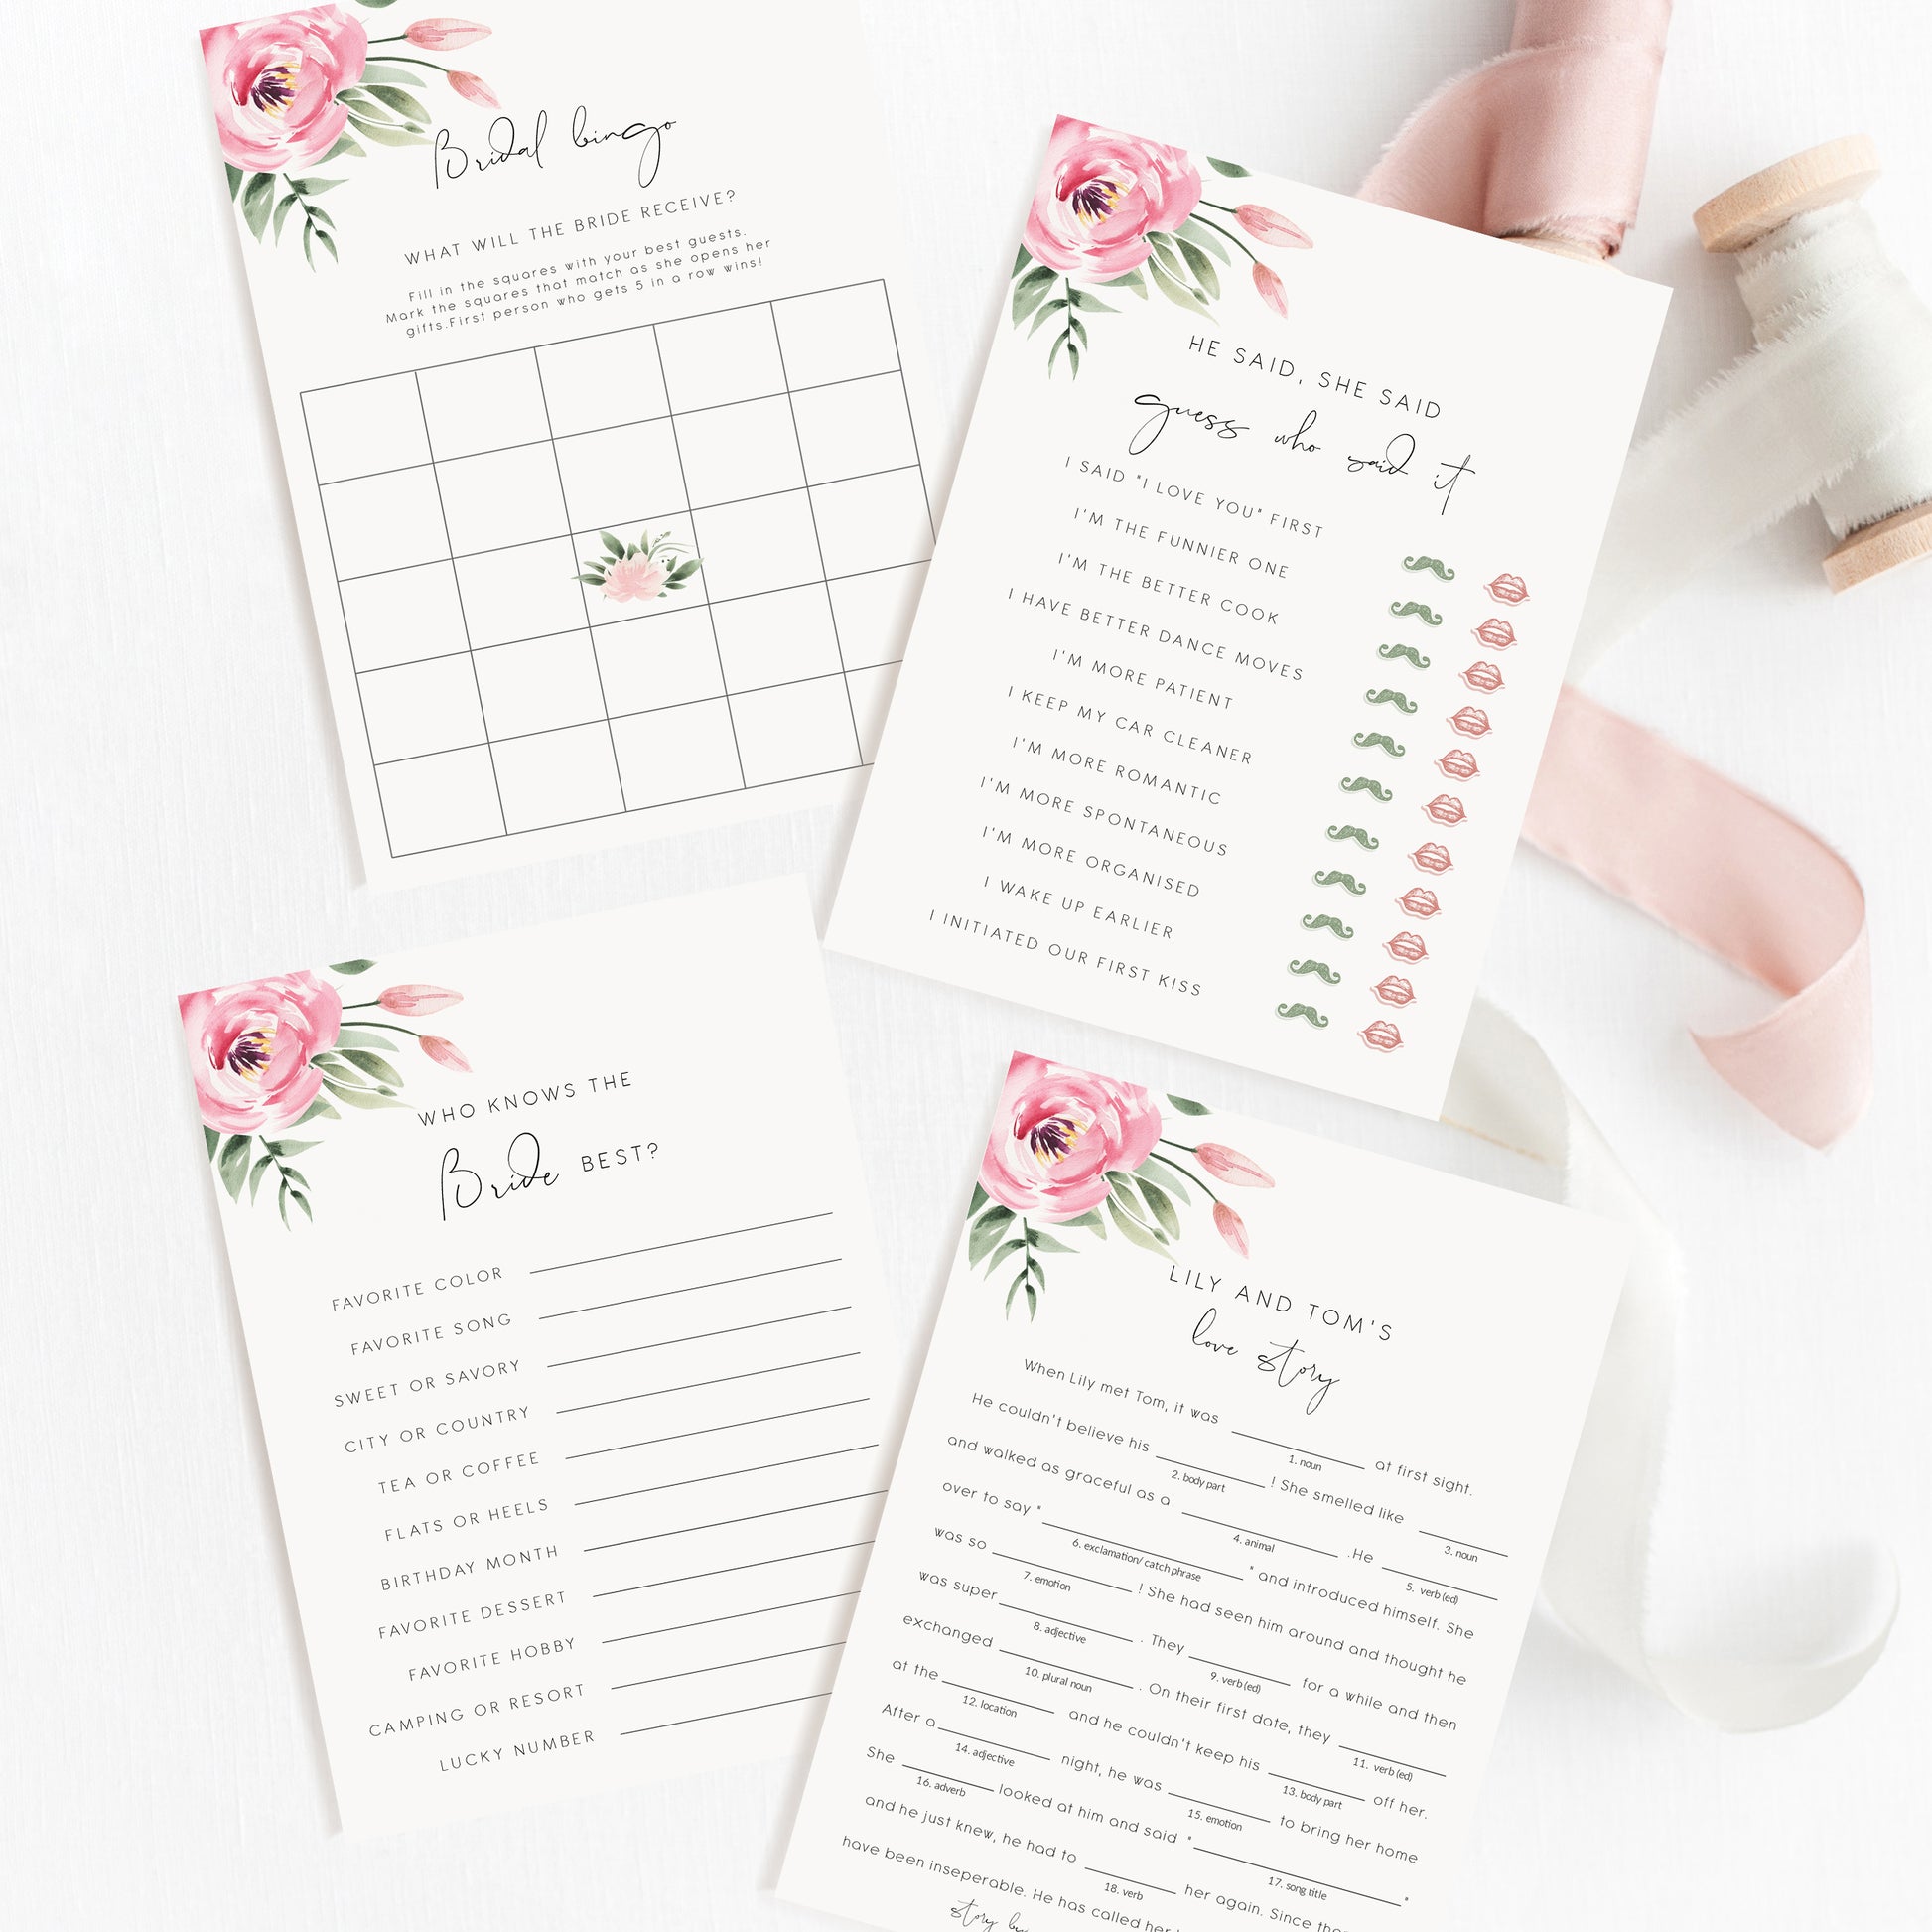 Bridal bingo
WHAT WILL THE BRIDE RECEIVE?
Fill in the squares with your best guests.
Mark the squares that match as she opens her
gifts.First person who gets 5 in a row wins!
HE SAID, SHE SAID
guess who said it
I SAID "I LOVE YOU" FIRST
I'M THE FUNNIER ONE
I'M THE BETTER COOK
I HAVE BETTER DANCE MOVES
I'M MORE PATIENT
I KEEP MY CAR CLEANER
I'M MORE ROMANTIC
I'M MORE SPONTANEOUS
I'M MORE ORGANISED
I WAKE UP EARLIER
I INITIATED OUR FIRST KISS
WHO KNOWS THE
Bride BEST?
FAVORITE COLOR
FAVORITE SONG
SWEET OR SAVORY
CITY OR COUNTRY
TEA OR COFFEE
FLATS OR HEELS
BIRTHDAY MONTH
FAVORITE DESSERT
FAVORITE HOBBY
CAMPING OR RESORT
LUCKY NUMBER
LILY AND TOM'S
love story
When Lily met Tom, it was at first sight.
1. noun
He couldn't believe his ! She smelled like
2. body part 3. noun
and walked as graceful as a .He
4. animal 5. verb (ed)
over to say " " and introduced himself. She
6. exclamation/ catch phrase
was so ! She had seen him around and thought he
7. emotion
was super . They for a while and then
8. adjective 9. verb (ed)
exchanged . On their first date, they
10. plural noun 11. verb (ed)
at the and he couldn't keep his off her.
12. location 13. body part
After a night, he was to bring her home
14. adjective 15. emotion
She looked at him and said " "
16. adverb 17. song title
and he just knew, he had to her again. Since
18. verb
have been inseperable. He has called her
story